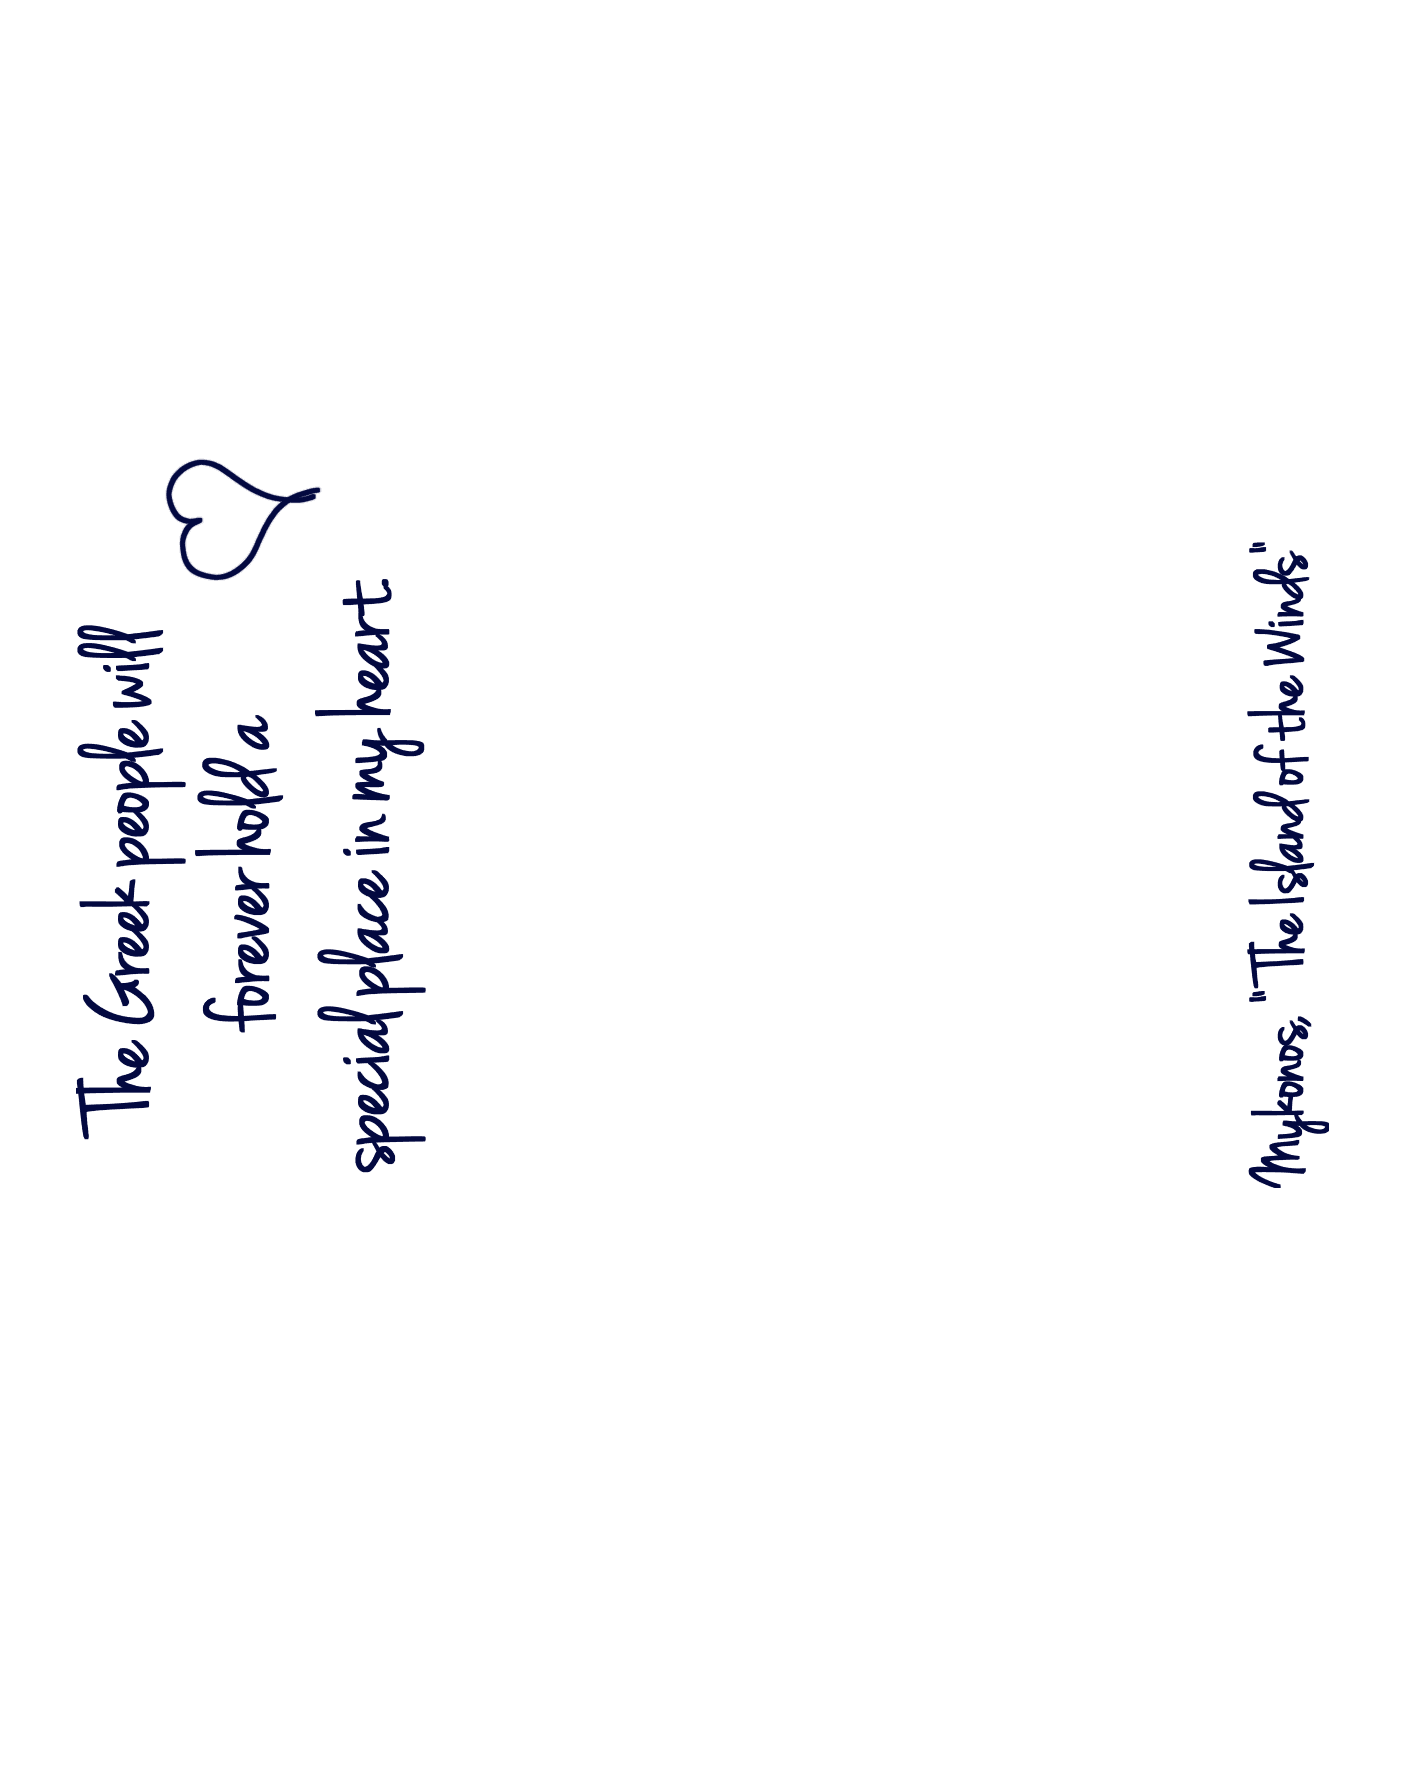 The Greek people will
forever hold a
special place in my heart.
Mykonos, "The Island of the Winds"